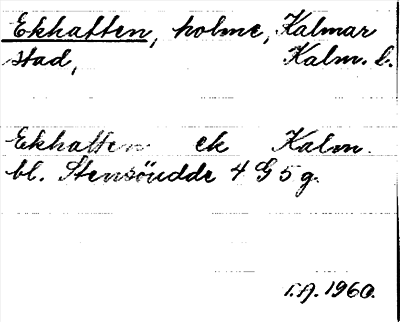 Ekhatten, holme, Kalmar
stad, Kalm. l.
Ekhatten ek Kalm.
bl. Stensöudde 4 G 5 g.
r.A. 1960.